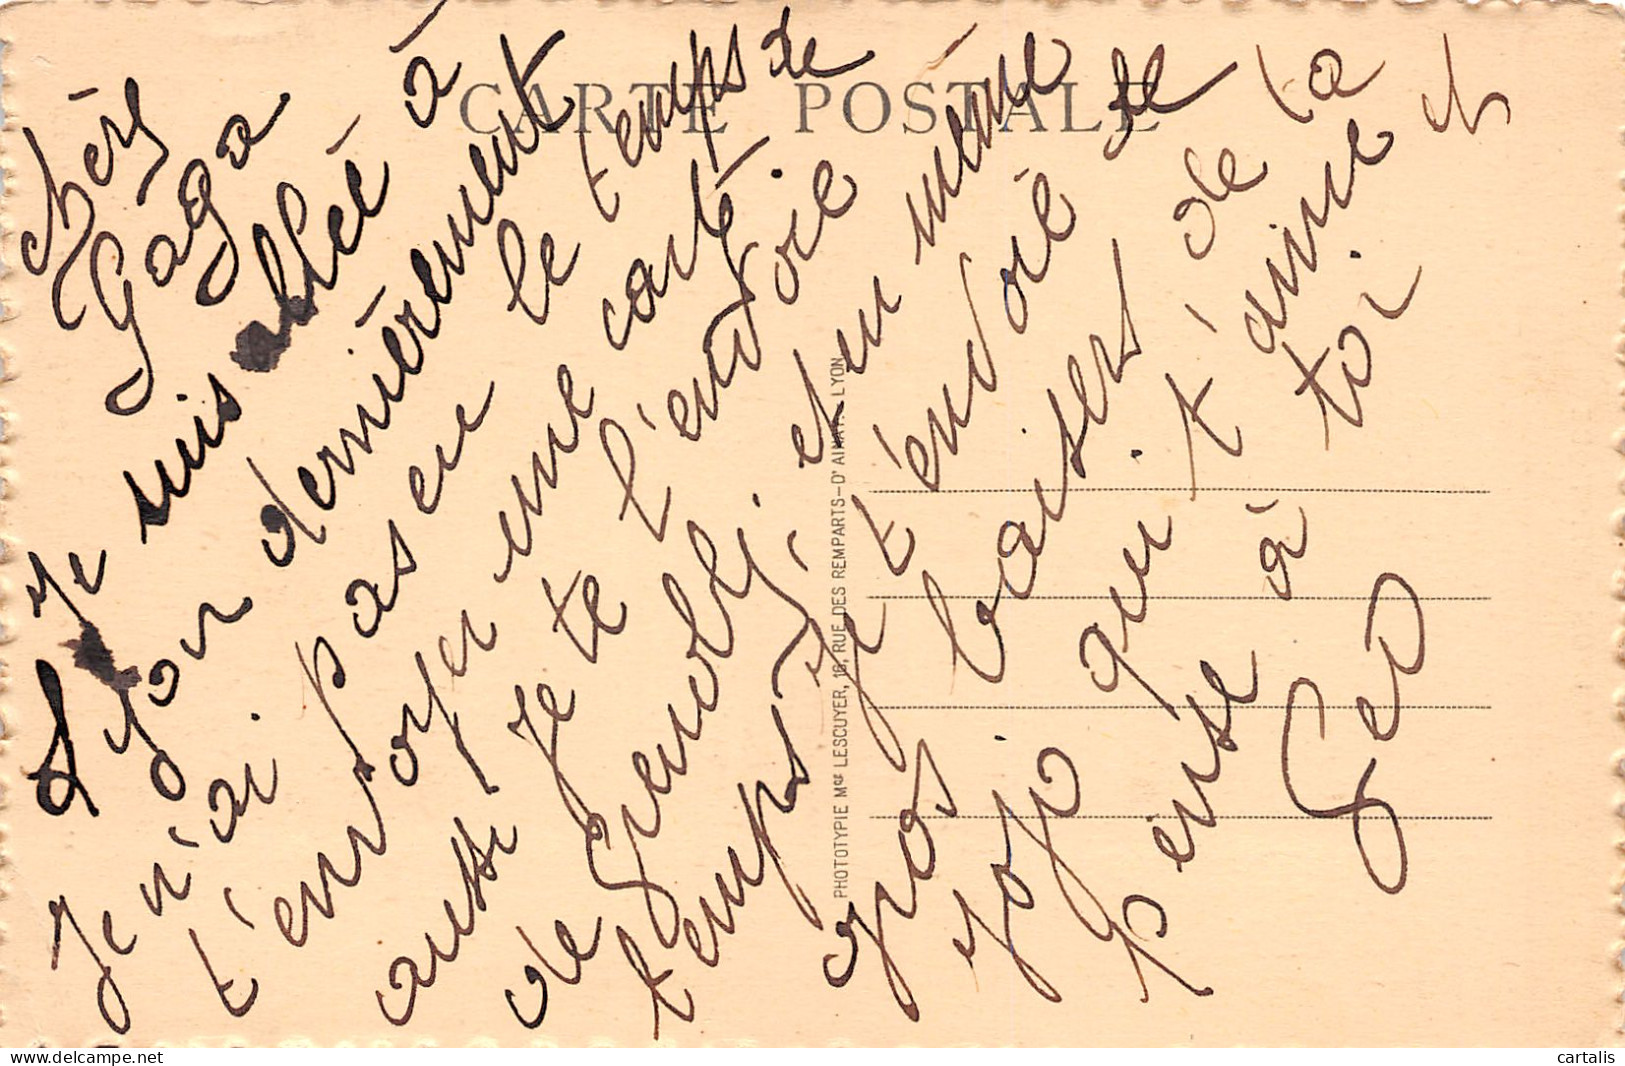 CARTE POSTALE
Chère
Gaga
Je suis allée à
Lyon dernièrement
Je n'ai pas eu le temps de
t'envoyer une carte.
aussi je te l'envoie
de Grenoble, et en même
temps je t'envoie de
gros baisers de la
yoyo qui t'aime et
pense à toi
Geo
PHOTOTYPIE Mce LESCUYER, 16, RUE DES REMPARTS-D'AINAY.- LYON
cartalis
jm-deltcampe